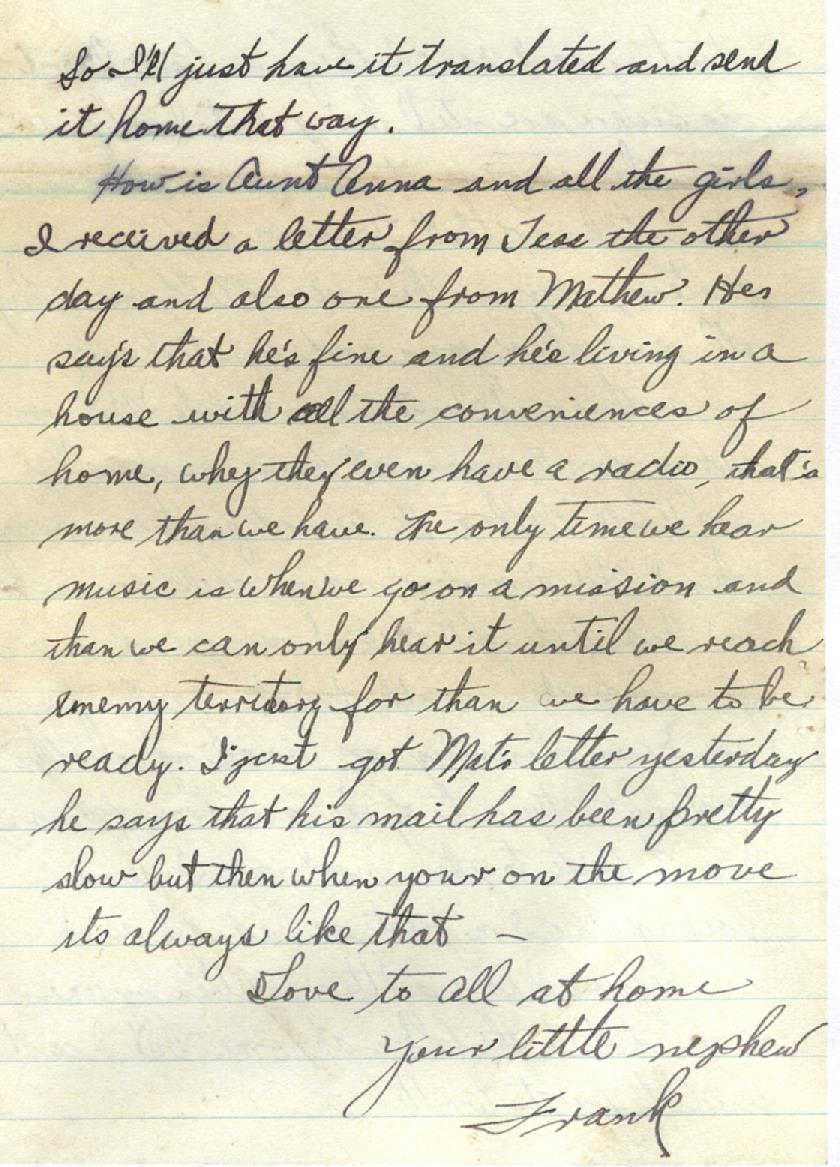 So I'll just have it translated and send
it home that way.
How is Aunt Anna and all the girls,
I received a letter from Tess the other
day and also one from Mathew. He
says that he's fine and he's living in a
house with all the conveniences of
home, why they even have a radio, that's
more than we have. The only time we hear
music is when we go on a mission and
than we can only hear it until we reach
enemy territory for than we have to be
ready. I just got Mat's letter yesterday
he says that his mail has been pretty
slow but then when your on the move
its always like that –
Love to all at home
Your little nephew
Frank